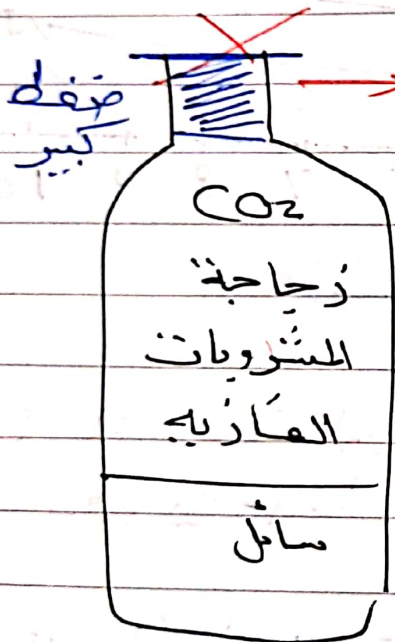 ضغط
كبير
CO2
زجاجة
المشروبات
الغازيه
سائل